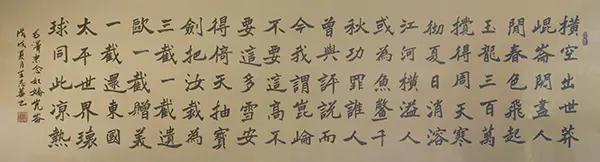 橫空出世莽
崐崙閱盡人
間春色飛起
玉龍三百萬
攪得周天寒
徹夏日消溶
江河橫溢人
或為魚鱉千
秋功罪誰人
曾與評說而
今我謂崑崙
不要這高不
要這多雪安
得倚天抽寶
劍把汝裁為
三截一截遺
歐一截贈美
一截還東國
太平世界環
球同此涼熱
東念奴嬌
戊戌夏月王